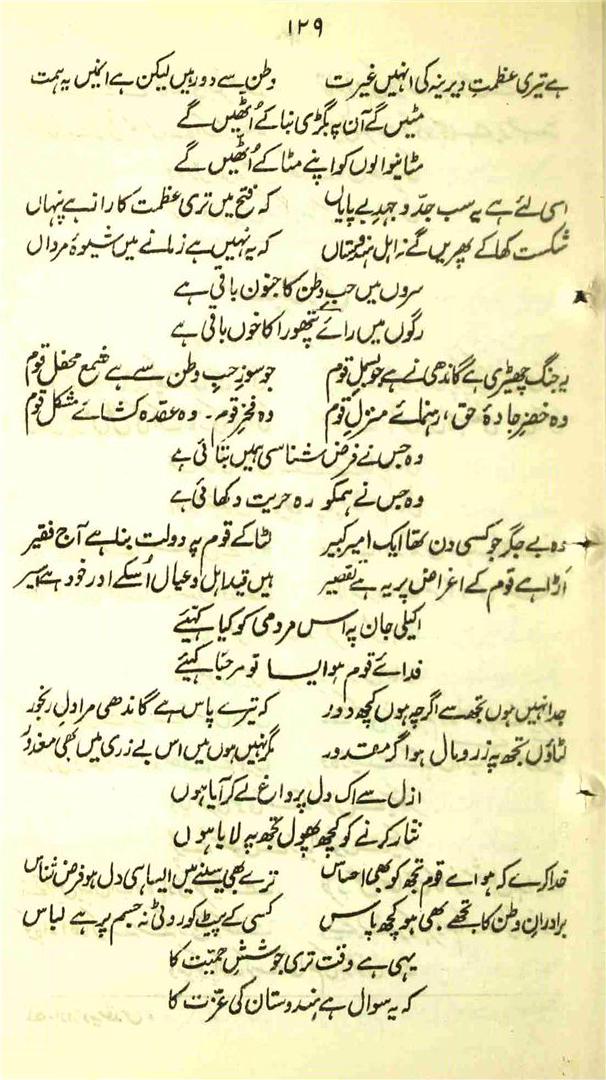 ۱۲۹
ہے تیری عظمتِ دیرینہ کی انہیں غیرت وطن سے دور ہیں لیکن ہے انہیں یہ ہمت
مٹیں گے آن پہ بگڑی بنا کے اُٹھیں گے
مٹانیوالوں کو اپنے مٹا کے اُٹھیں گے
اسی لئے ہے یہ سب جدّ و جہدِ بے پایاں کہ فتح میں تری عظمت کا راز ہے پنہاں
شکست کھا کے پھریں گے نہ اہل ہندوستاں کہ یہ نہیں ہے زمانے میں شیوۂ مرداں
سروں میں حبِ وطن کا جنون باقی ہے
رگوں میں رائے پتھورا کا خوں باقی ہے
یہ جنگ چھیڑی ہے گاندھی نے ہے جو بسملِ قوم جو سوزِ حبِ وطن سے ہے شمع محفل قوم
وہ خضرِ جادۂ حق، رہنمائے منزلِ قوم وہ فخرِ قوم۔ وہ عقدہ کشائے مشکل قوم
وہ جس نے فرض شناسی ہمیں بتائی ہے
وہ جس نے ہمکو رہ حریت دکھائی ہے
وہ بے جگر جو کسی دن تھا ایک امیر کبیر لٹا کے قوم پہ دولت بنا ہے آج فقیر
اَڑا ہے قوم کے اغراض پر یہ بے تقصیر ہیں قید اہل و عیال اُسکے اور خود ہے اسیر
اکیلی جان پہ اس مردمی کو کیا کہیئے
فدائے قوم ہو ایسا تو مرحبا کہیئے
جدا نہیں ہوں تجھ سے اگرچہ ہوں کچھ دور کہ تیرے پاس ہے گاندھی مرا دلِ رنجور
لٹاؤں تجھ پہ زر و مال ہو اگر مقدور مگر نہیں ہوں میں اس بے زری میں بھی معذور
ازل سے اک دل پر داغ لے کر آیا ہوں
نثار کرنے کو کچھ پھول تجھ پہ لایا ہوں
خدا کرے کہ ہو اے قوم تجھ کو بھی احساس ترے بھی سینے میں ایسا ہی دل ہو فرض شناس
برادرانِ وطن کا تجھے بھی ہو کچھ پاس کسی کے پیٹ کو روٹی نہ جسم پر ہے لباس
یہی ہے وقت تری جوششِ حمیّت کا
کہ یہ سوال ہے ہندوستان کی عزّت کا